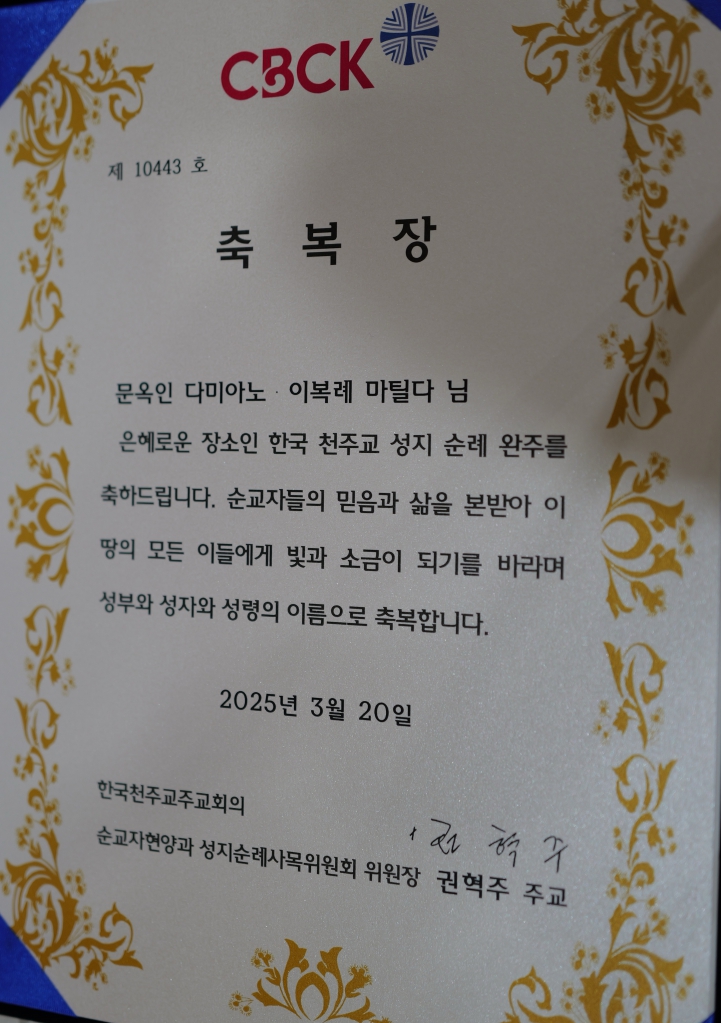 CBCK
제 10443 호
축 복 장
문옥인 다미아노 · 이복례 마틸다 님
은혜로운 장소인 한국 천주교 성지 순례 완주를
축하드립니다. 순교자들의 믿음과 삶을 본받아 이
땅의 모든 이들에게 빛과 소금이 되기를 바라며
성부와 성자와 성령의 이름으로 축복합니다.
2025년 3월 20일
한국천주교주교회의
순교자현양과 성지순례사목위원회 위원장 권혁주 주교
+ 권 혁 주